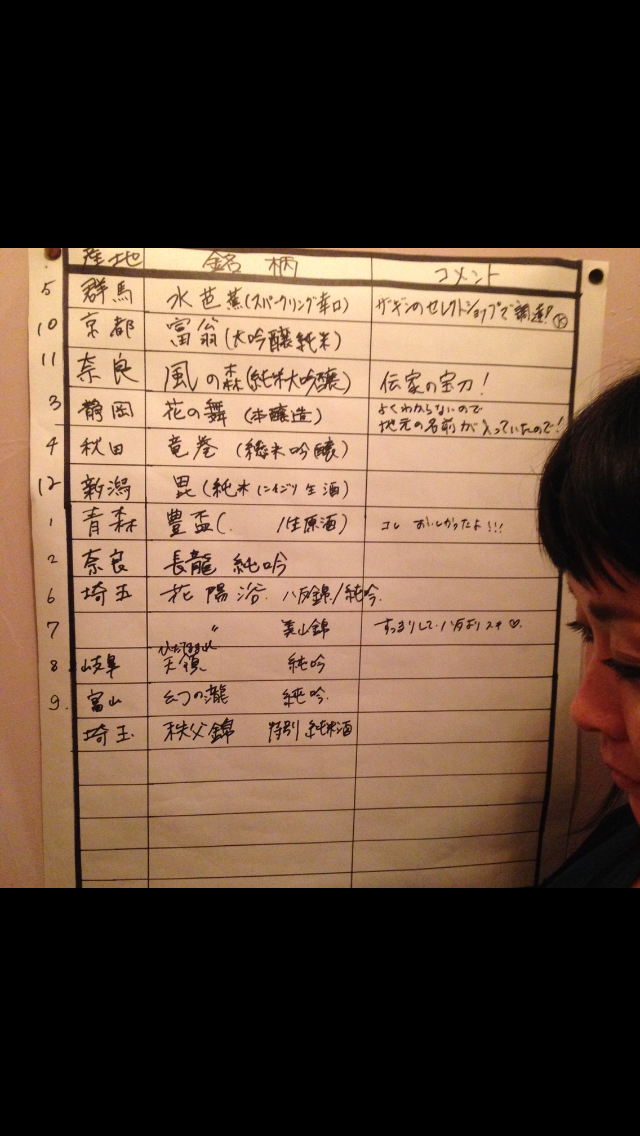 産地 銘柄 コメント
5 群馬 水芭蕉(スパークリング辛口) ザギンのセレクトショップで調達!
10 京都 富翁(大吟醸純米)
11 奈良 風の森(純米大吟醸) 伝家の宝刀!
3 静岡 花の舞(本醸造) よくわからないので
地元の名前が入っていたので!
4 秋田 竜巻(純米吟醸)
12 新潟 毘(純米にごり生酒)
1 青森 豊盃( /生原酒) コレ おいしかったよ!!!
2 奈良 長龍 純吟
6 埼玉 花陽浴 八反錦/純吟
7 〃 美山錦 すっきりして、八反よりスキ♡
8 岐阜 天領 純吟
9. 富山 幻の瀧 純吟
埼玉 秩父錦 特別純米酒